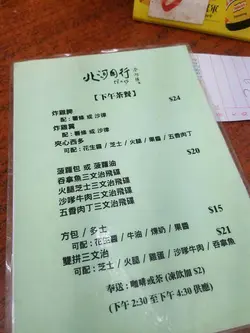 北河同行
【下午茶餐】
炸雞髀 $24
配：薯條 或 沙律
炸雞翼
配：薯條 或 沙律
夾心西多
可配：花生醬 / 芝士 / 火腿 / 果醬 / 五香肉丁
$20
菠蘿包 或 菠蘿油
吞拿魚三文治飛碟
火腿芝士三文治飛碟
沙嗲牛肉三文治飛碟
五香肉丁三文治飛碟
$15
方包 / 多士
可配：花生醬 / 牛油 / 煉奶 / 果醬
雙拼三文治 $21
可配：芝士 / 火腿 / 雞蛋 / 沙嗲牛肉 / 吞拿魚
奉送：咖啡或茶 (凍飲加 $2)
(下午 2:30 至下午 4:30 供應)